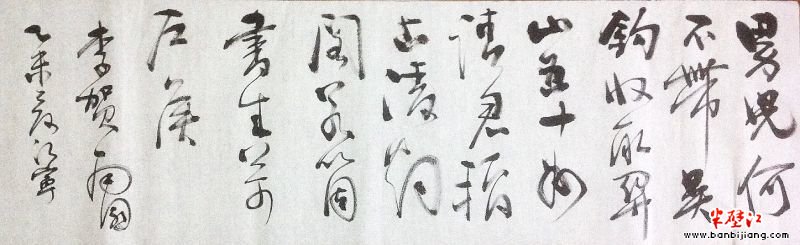 男兒何
不帶吳
鈎收取關
山五十州
請君暫
上凌煙
閣若箇
書生萬
戶侯
李賀南園
乙未
半壁江
www.banbijiang.com